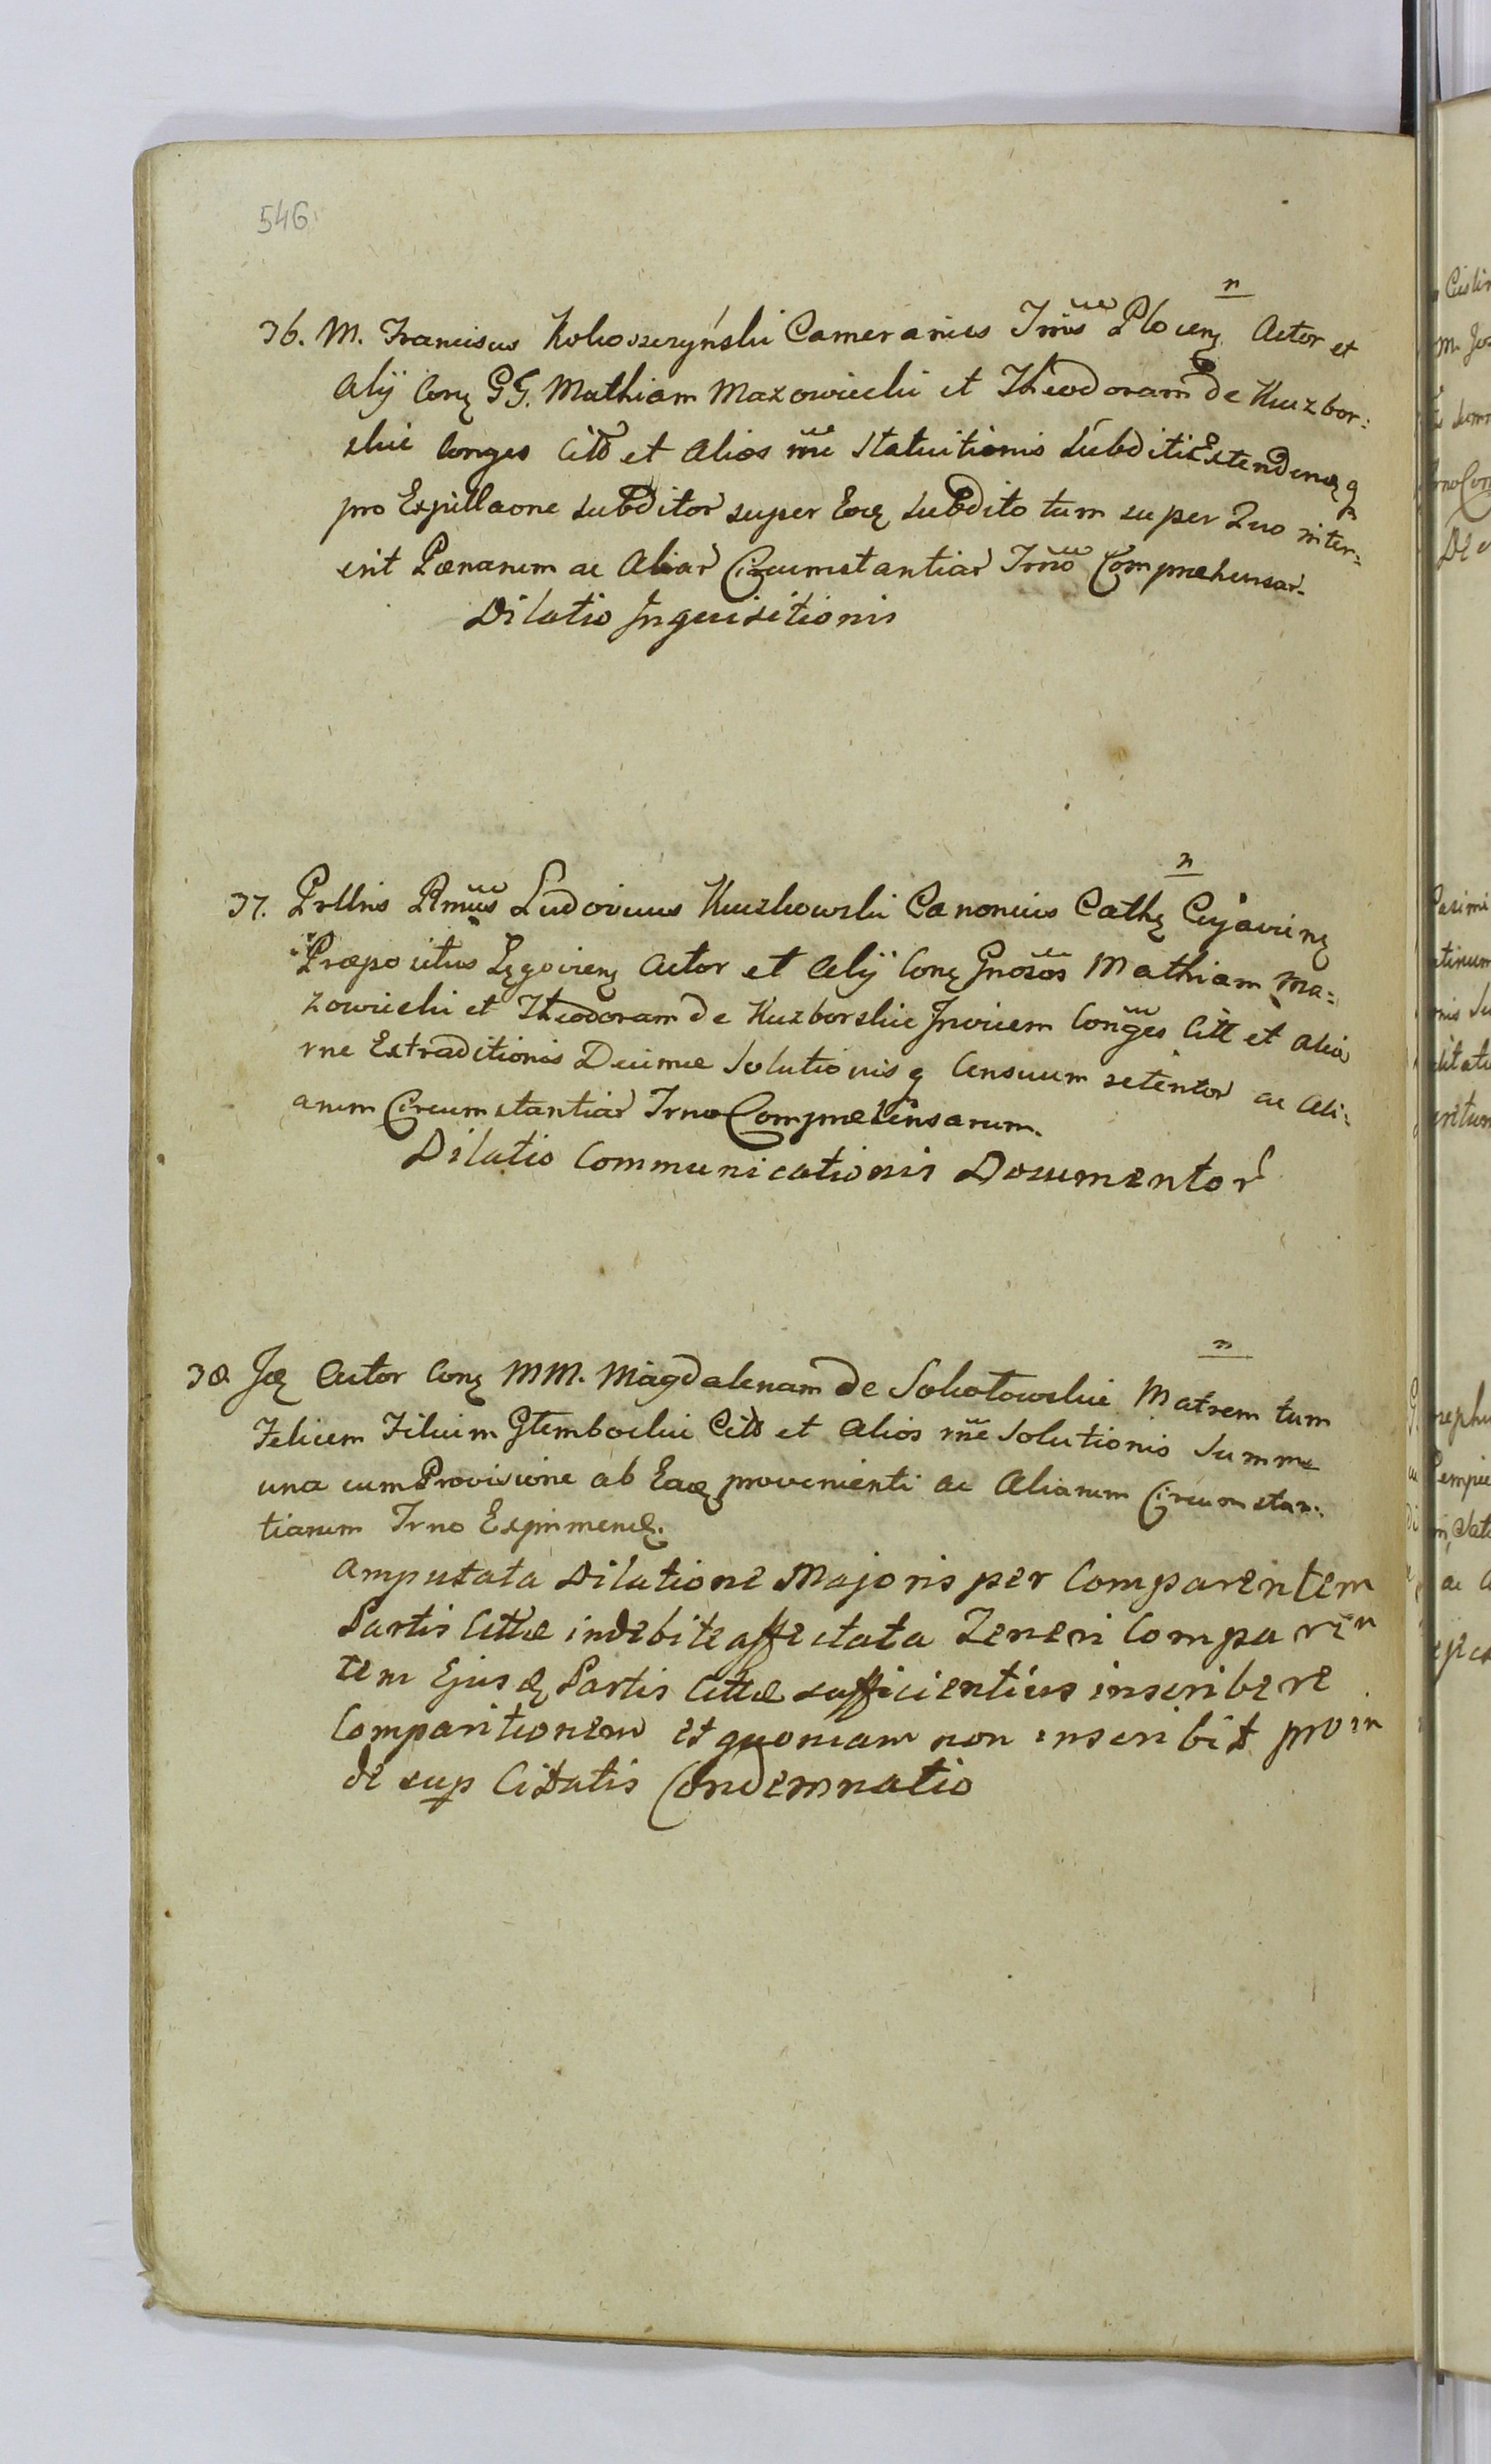 546
n
36. M. Franciscus Kokoszczyński Camerarius Trris Plocen Actor et
Alij Con GG. Mathiam Mazowiecki et Theodoram de Kuczbor:
skie Conges Citt et Alios rne Statuitionis Subditi Extendenq
pro Expillaone Subditor super Eoq Subdito tum super Quo inter:
erit Pænarum ac Aliar Circumstantiar Trno Compræhensar.
Dilatio Inquisitionis
n
37. Prllris Rmus Ludovicus Kuczkowski Canonicus Cath Cujavien
Præpositus Lgovien Actor et Alij Con Gnosos Mathiam Ma:
zowiecki et Theodoram de Kuczborskie Invicem Conges Citt et Alios
rne Extraditionis Decimæ Solutionisq Censuum retentor ac Ali:
arum Circumstantiar Trno Compræhensarum.
Dilatio Communicationis Documentor
n
38. Id Actor Con MM. Magdalenam de Sokołowskie Matrem tum
Felicem Filium Głembockie Citt et Alios rne Solutionis Summæ
una cum Provisione ab Ead provenienti ac Aliarum Circumstan:
tiarum Trno Exprimend.
Amputata Dilatione Majoris per Comparentem
Partis Cittæ indebite affectata Teneri Comparen
tem Ejusd Partis Cittæ sufficientius inscribere
Comparitionem et quoniam non inscribit proin
de sup Citatis Condemnatio